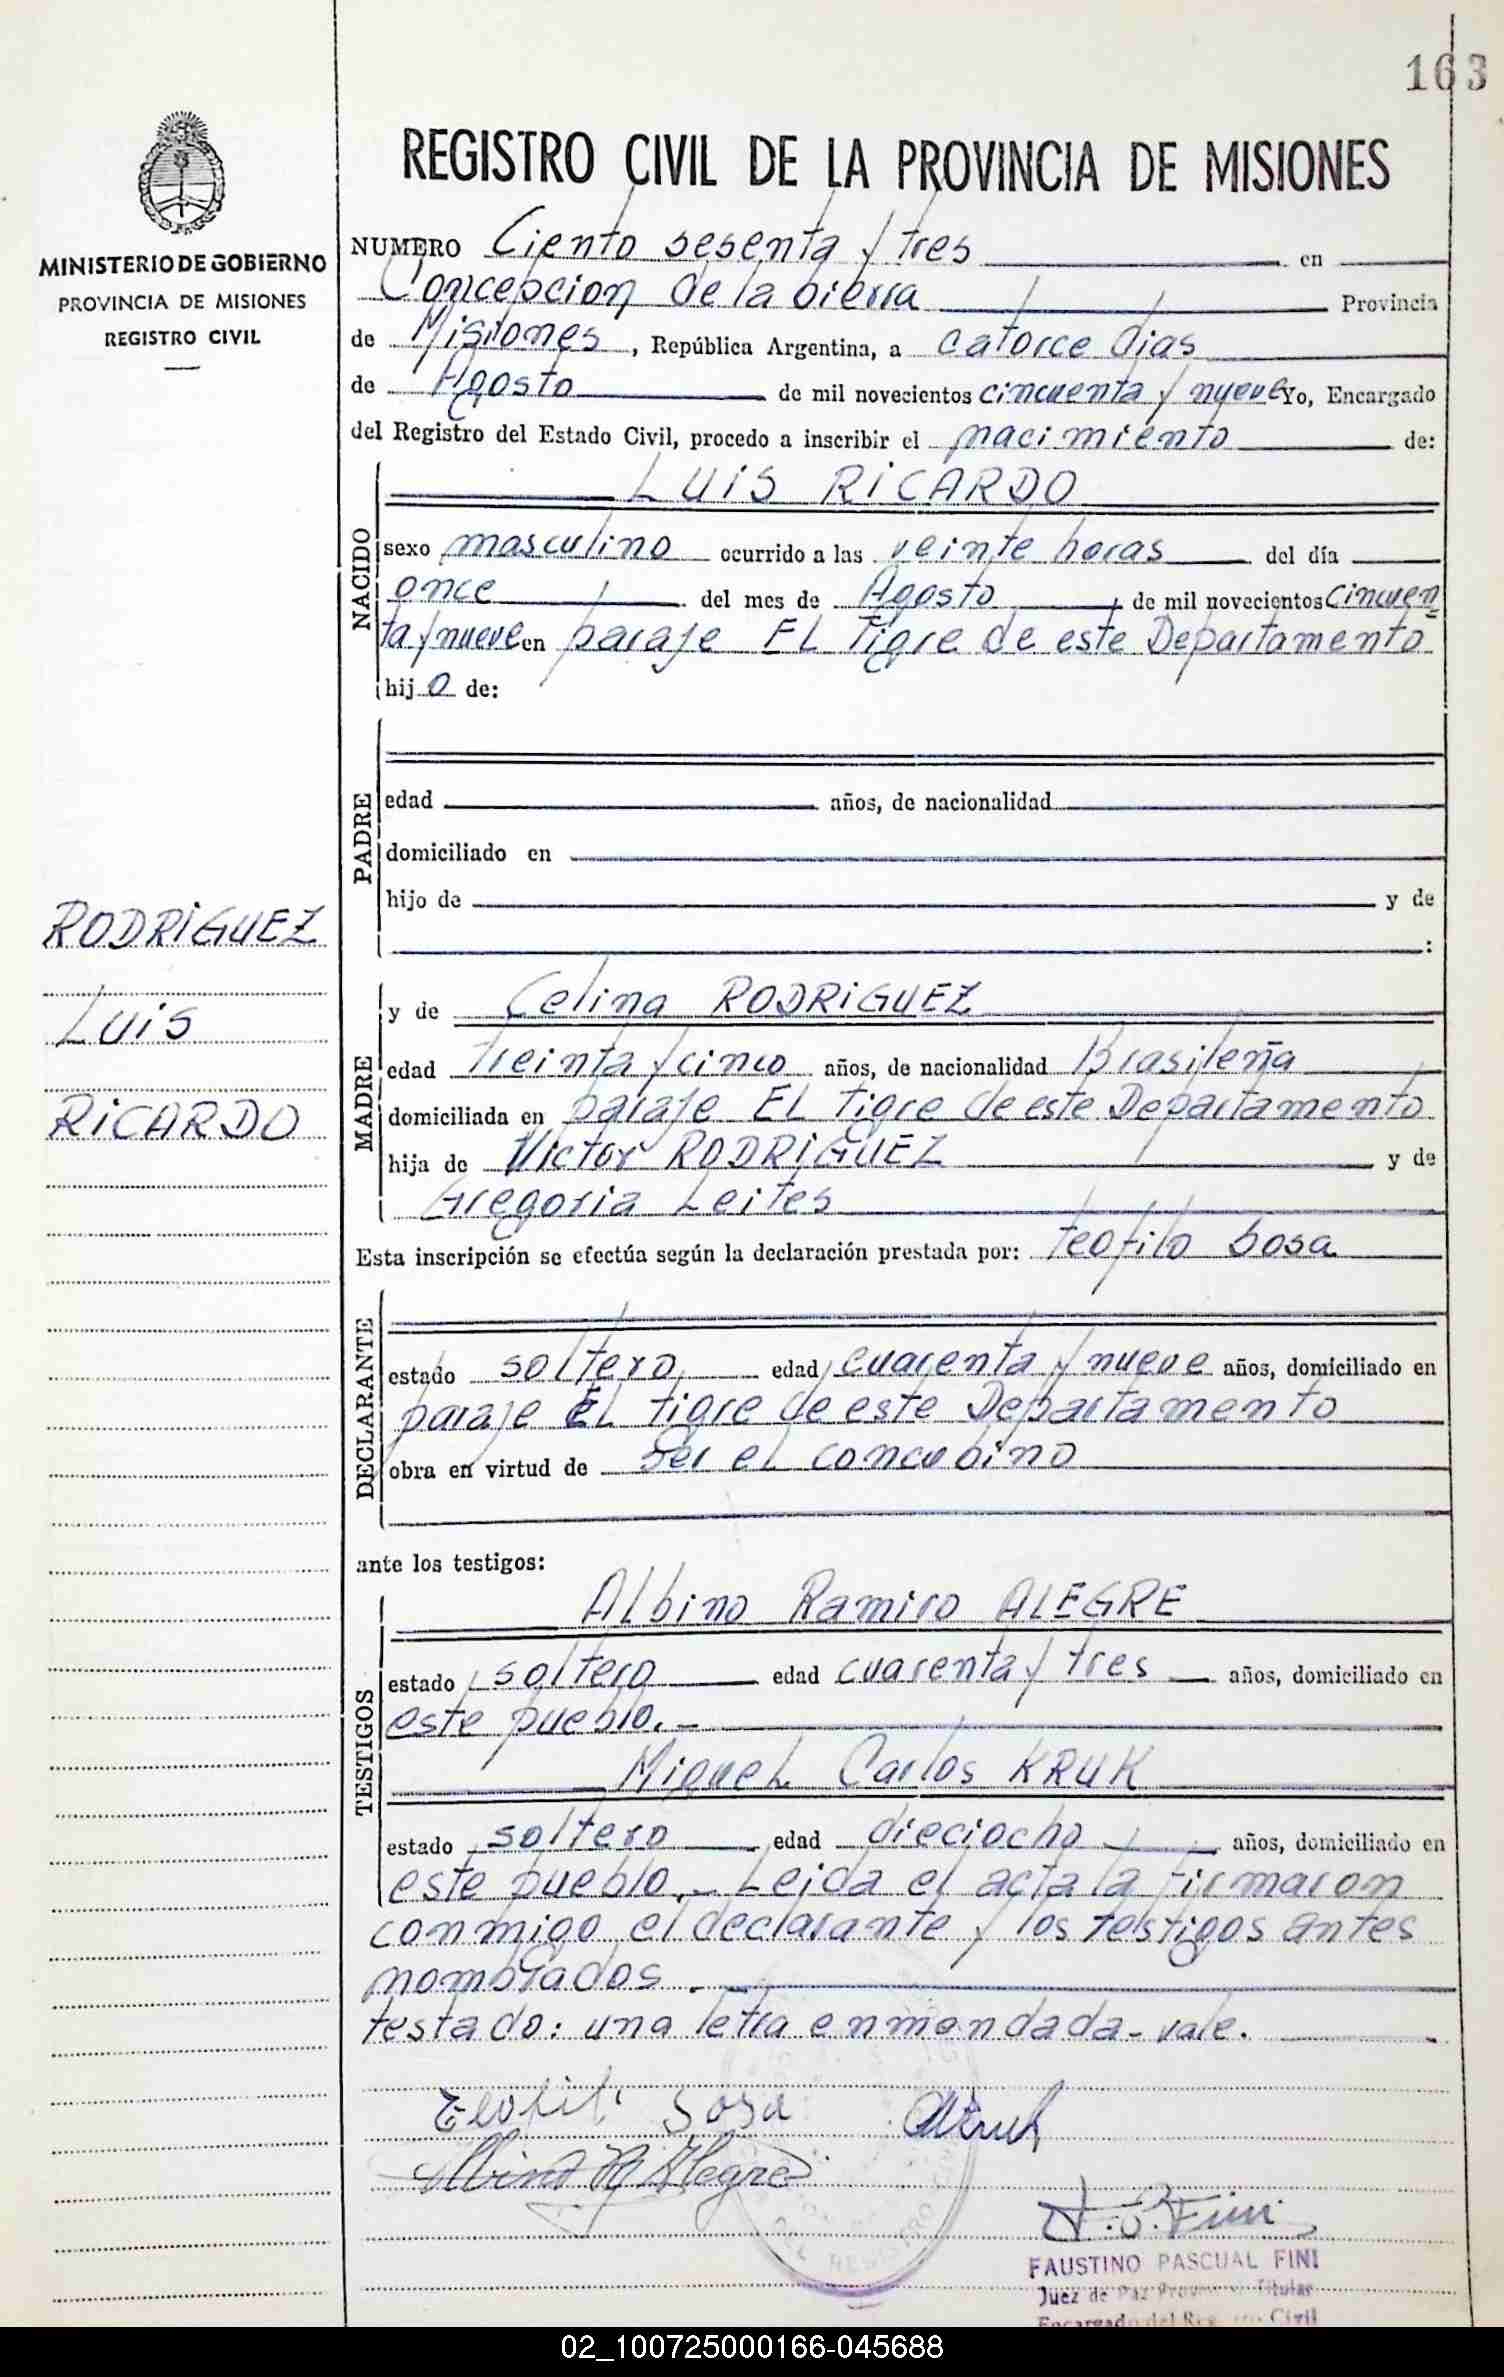 163
MINISTERIO DE GOBIERNO
PROVINCIA DE MISIONES
REGISTRO CIVIL
REGISTRO CIVIL DE LA PROVINCIA DE MISIONES
NUMERO Ciento sesenta y tres en
Concepcion de la Sierra Provincia
de Misiones, República Argentina, a catorce dias
de Agosto de mil novecientos cincuenta y nueve Yo, Encargado
del Registro del Estado Civil, procedo a inscribir el nacimiento de:
NACIDO
LUIS RICARDO
sexo masculino ocurrido a las veinte horas del día
once del mes de Agosto de mil novecientos cincuen
ta y nueve en paraje EL Tigre de este Departamento
hijo de:
PADRE
edad años, de nacionalidad
domiciliado en
hijo de y de
:
RODRIGUEZ
LUIS
RICARDO
MADRE
y de Celina RODRIGUEZ
edad treinta y cinco años, de nacionalidad Brasileña
domiciliada en paraje EL tigre de este Departamento
hija de Victor RODRIGUEZ y de
Gregoria Leites
Esta inscripción se efectúa según la declaración prestada por: teofilo Sosa
DECLARANTE
estado soltero edad cuarenta y nueve años, domiciliado en
paraje EL tigre de este Departamento
obra en virtud de ser el concubino
ante los testigos:
TESTIGOS
Albino Ramiro ALEGRE
estado soltero edad cuarenta y tres años, domiciliado en
este pueblo.-
Miguel Carlos KRUK
estado soltero edad dieciocho años, domiciliado en
este pueblo.- Leida el acta la firmaron
conmigo el declarante y los testigos antes
nombrados.
testado: una letra enmendada-vale.
Teofilo Sosa
Albino R Alegre
F. P. Fini
FAUSTINO PASCUAL FINI
Juez de Paz Titular
Encargado del Civil
02_100725000166-045688